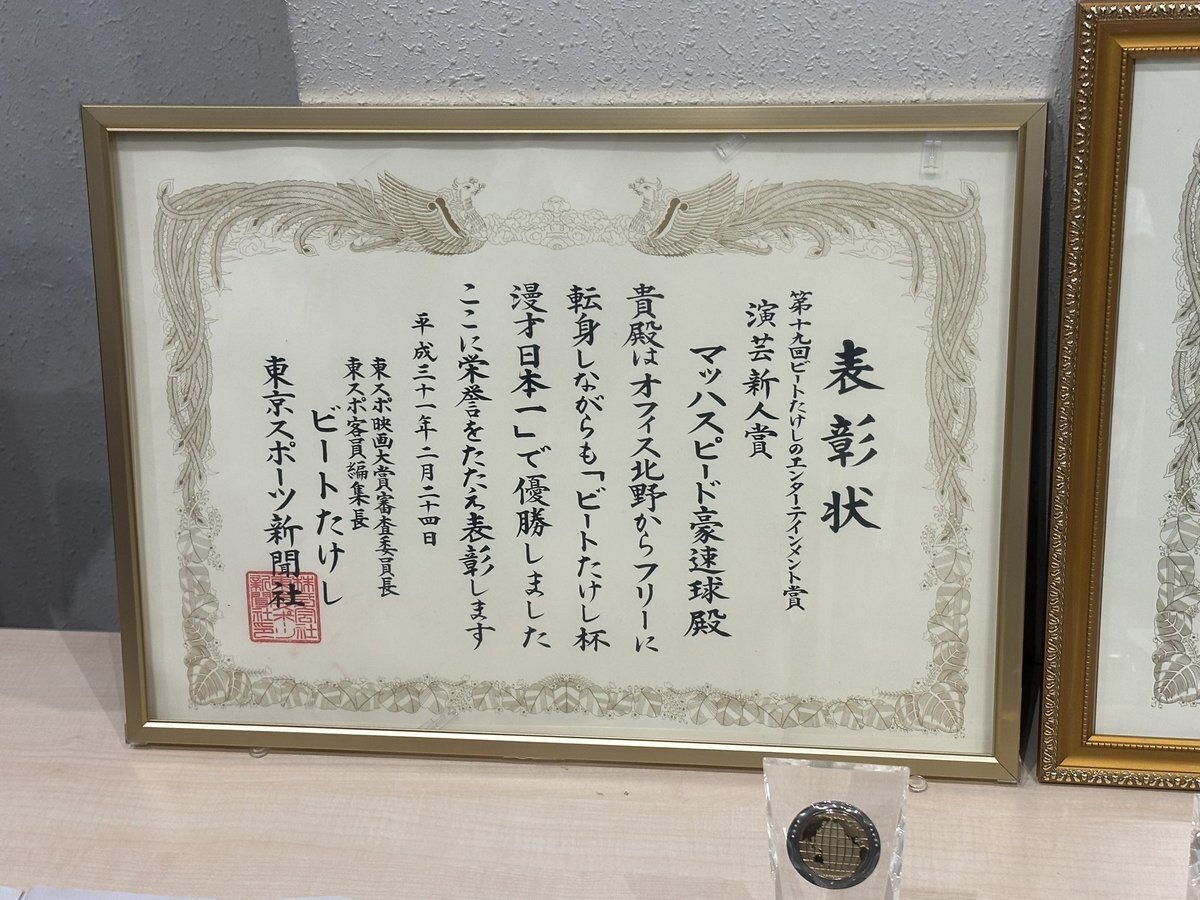 表彰状
第十九回ビートたけしのエンターテインメント賞
演芸新人賞
マッハスピード豪速球殿
貴殿はオフィス北野からフリーに
転身しながらも「ビートたけし杯
漫才日本一」で優勝しました
ここに栄誉をたたえ表彰します
平成三十一年二月二十四日
東スポ映画大賞審査委員長
東スポ客員編集長
ビートたけし
東京スポーツ新聞社